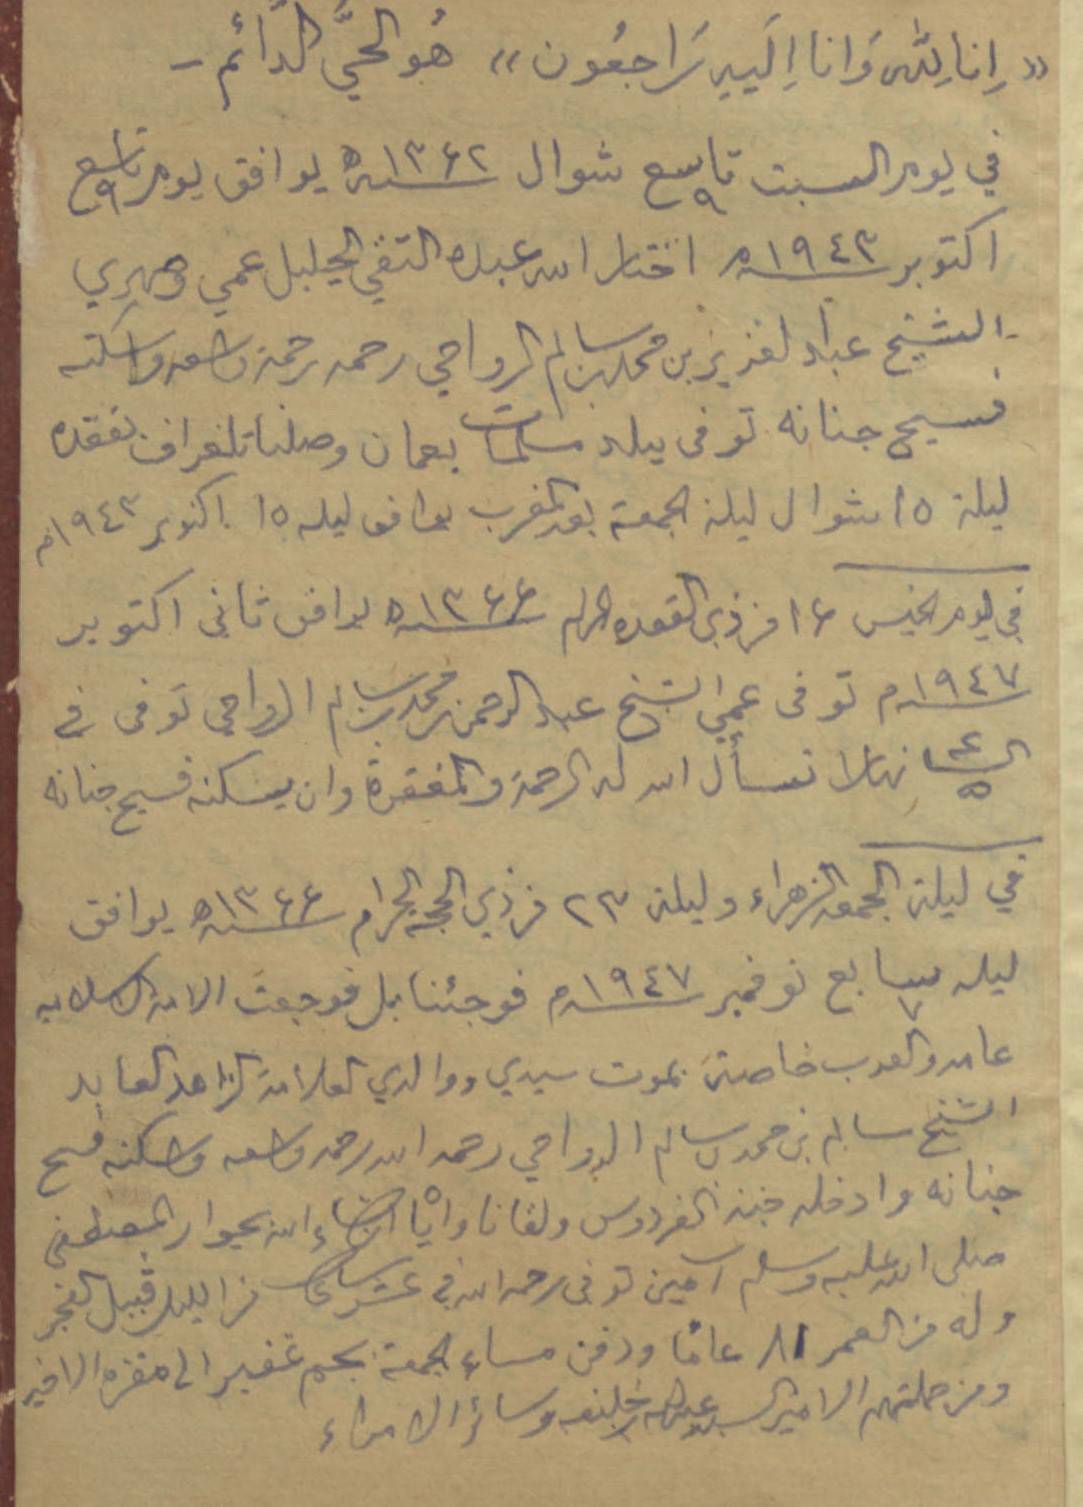 «إنا لله وَانا إِلَيهِ رَاجعُون» هُو الحيُّ الدَّائم -
في يوم السبت تاسع ٩ شوال ١٣٦٢ه يوافق يوم تاسع ٩
اكتوبر ١٩٤٣م اختار الله عبده التقي الجليل عمي وصهري
الشيخ عبد العزيز بن محمد بن سالم الرواحي رحمه رحمة واسعه واسكنه
فسيح جنانه توفى ببلد مسلمات بعمان وصلنا تلغراف بفقده
ليلة ١٥ شوال ليلة الجمعة بعد المغرب يوافق ليله ١٥ اكتوبر ١٩٤٣م
في يوم الخميس ١٦ من ذي القعده الحرام ١٣٦٦ه يوافق ثاني اكتوبر
١٩٤٧م توفى عمي الشيخ عبد الرحمن بن محمد بن سالم الرواحي توفى في
الساعة ٥ نهارا نسأل الله له الرحمة والمغفرة وان يسكنه فسيح جنانه
في ليلة الجمعه الزهراء وليلة ٢٣ من ذي الحجه الحرام ١٣٦٦ه يوافق
ليله سابع ٧ نوفمبر ١٩٤٧م فوجئنا بل فوجعت الامة الاسلاميه
عامه والعرب خاصة بموت سيدي ووالدي العلامة الزاهد العابد
الشيخ سالم بن محمد بن سالم الرواحي رحمه الله رحمه واسعه واسكنه فسيح
جنانه وادخله جنة الفردوس ولقانا واياه انشاء الله بجوار المصطفى
صلى الله عليه وسلم آمين توفى رحمه الله في عشر ساعات من الليل قبيل الفجر
وله من العمر ٨١ عامًا ودفن مساء الجمعة بجم غفير الى مقره الاخير
ومن جملتهم الامير السيد عبدالله بن خليفه وسائر الامراء